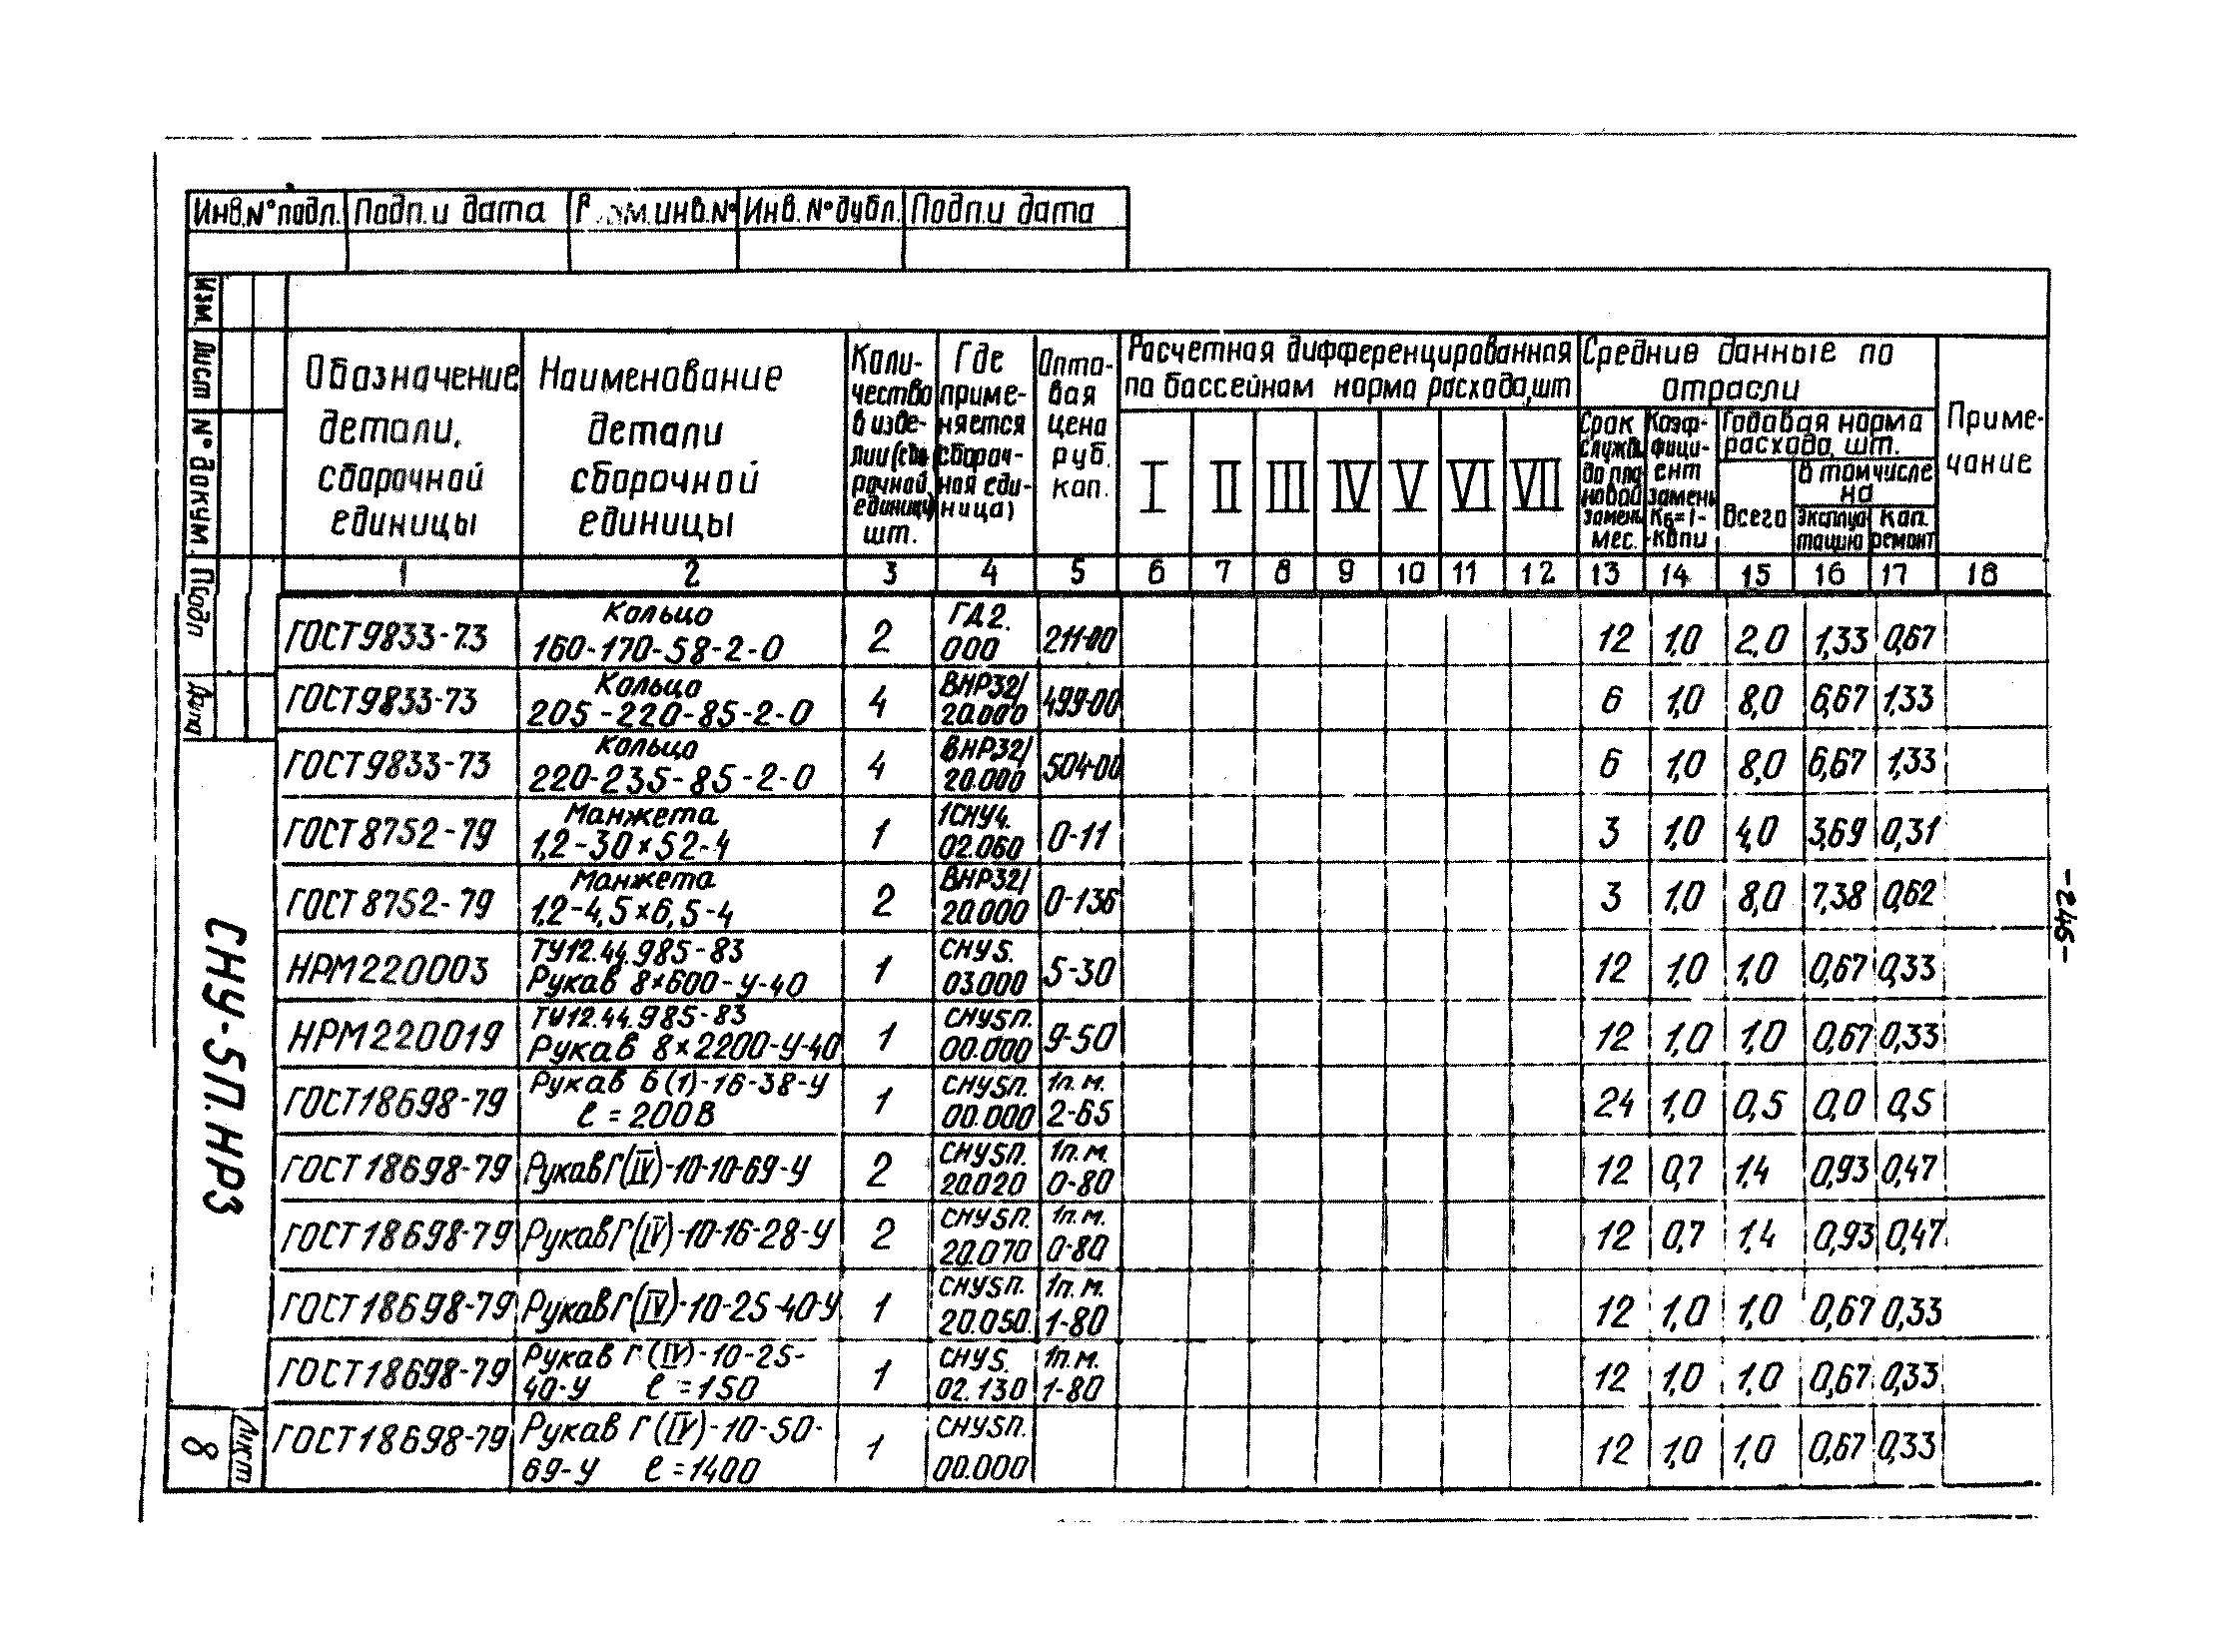 Инв.№подл. Подп. и дата инв.№ Инв.№дубл. Подп.и дата
Изм. Лист № докум. Подп Дата
Обозначение детали, сборочной единицы
Наименование детали сборочной единицы
Коли-
чество
в изде-
лии(сбо-
рочной
единице)
шт.
Где
приме-
няется
(сбороч-
ная еди-
ница)
Опто-
вая
цена
руб.
коп.
Расчетная дифференцированная
по бассейнам норма расхода,шт
I II III IV V VI VII
Средние данные по
отрасли
Срок
службы
до пла
новой
замены
мес.
Коэф-
фици-
ент
замены
Кв=1-
-Квпи
Годовая норма
расхода, шт.
Всего
в том числе
на
Эксплуа
тацию
Кап.
ремонт
Приме-
чание
1 2 3 4 5 6 7 8 9 10 11 12 13 14 15 16 17 18
ГОСТ9833-73 Кольцо 160-170-58-2-0 2 ГД2. 000 211-00 12 1,0 2,0 1,33 0,67
ГОСТ9833-73 Кольцо 205-220-85-2-0 4 ВНР32/ 20.000 499-00 6 1,0 8,0 6,67 1,33
ГОСТ9833-73 Кольцо 220-235-85-2-0 4 ВНР32/ 20.000 504-00 6 1,0 8,0 6,67 1,33
ГОСТ8752-79 Манжета 1,2-30×52-4 1 1СНУ4. 02.060 0-11 3 1,0 4,0 3,69 0,31
ГОСТ8752-79 Манжета 1,2-4,5×6,5-4 2 ВНР32/ 20.000 0-136 3 1,0 8,0 7,38 0,62
НРМ220003 ТУ12.44.985-83 Рукав 8×600-У-40 1 СНУ5. 03.000 5-30 12 1,0 1,0 0,67 0,33
НРМ220019 ТУ12.44.985-83 Рукав 8×2200-У-40 1 СНУ5П. 00.000 9-50 12 1,0 1,0 0,67 0,33
ГОСТ18698-79 Рукав Б(1)-16-38-У ℓ=200В 1 СНУ5П. 00.000 1п.м. 2-65 24 1,0 0,5 0,0 0,5
ГОСТ18698-79 Рукав Г(IV)-10-10-69-У 2 СНУ5П. 20.020 1п.м. 0-80 12 0,7 1,4 0,93 0,47
ГОСТ18698-79 Рукав Г(IV)-10-16-28-У 2 СНУ5П. 20.070 1п.м. 0-80 12 0,7 1,4 0,93 0,47
ГОСТ18698-79 Рукав Г(IV)-10-25-40-У 1 СНУ5П. 20.050. 1п.м. 1-80 12 1,0 1,0 0,67 0,33
ГОСТ18698-79 Рукав Г(IV)-10-25-40-У ℓ=150 1 СНУ5. 02.130 1п.м. 1-80 12 1,0 1,0 0,67 0,33
ГОСТ18698-79 Рукав Г(IV)-10-50-69-У ℓ=1400 1 СНУ5П. 00.000 12 1,0 1,0 0,67 0,33
СНУ-5П.НРЗ
Лист
8
-246-